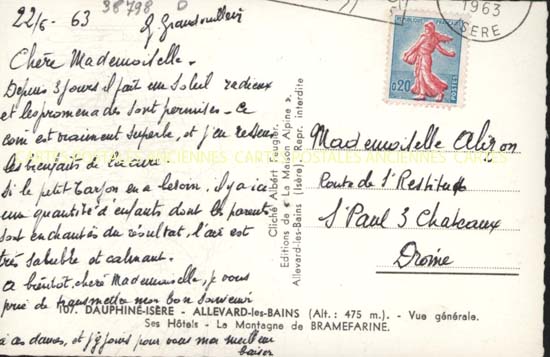 22/6 - 63
38798 D
1963
ISERE
REPUBLIQUE FRANÇAISE
0,20
POSTES
Chère Mademoiselle -
Depuis 3 jours il fait un Soleil radieux
et les promenades sont permises - Ce
coin est vraiment superbe, et j'en ressens
les bienfaits de la cure
Si le petit garçon en a besoin, il y a ici
une quantité d'enfants dont les parents
sont enchantés du résultat, l'air est
très salubre et calmant.
A bientôt, chère Mademoiselle, je vous
prie de transmettre mon bon souvenir
à ces dames, et j'y joins pour vous mon meilleur
baiser
CARTES POSTALES ANCIENNES
Cliché Albert Feugier.
Editions de « La Maison Alpine ».
Allevard-les-Bains (Isère) Repr. interdite
Mademoiselle Alizon
Route de St Restitut
St Paul 3 Chateaux
Drôme
107. DAUPHINÉ-ISÈRE - ALLEVARD-les-BAINS (Alt : 475 m.) - Vue générale.
Ses Hôtels - La Montagne de BRAMEFARINE.